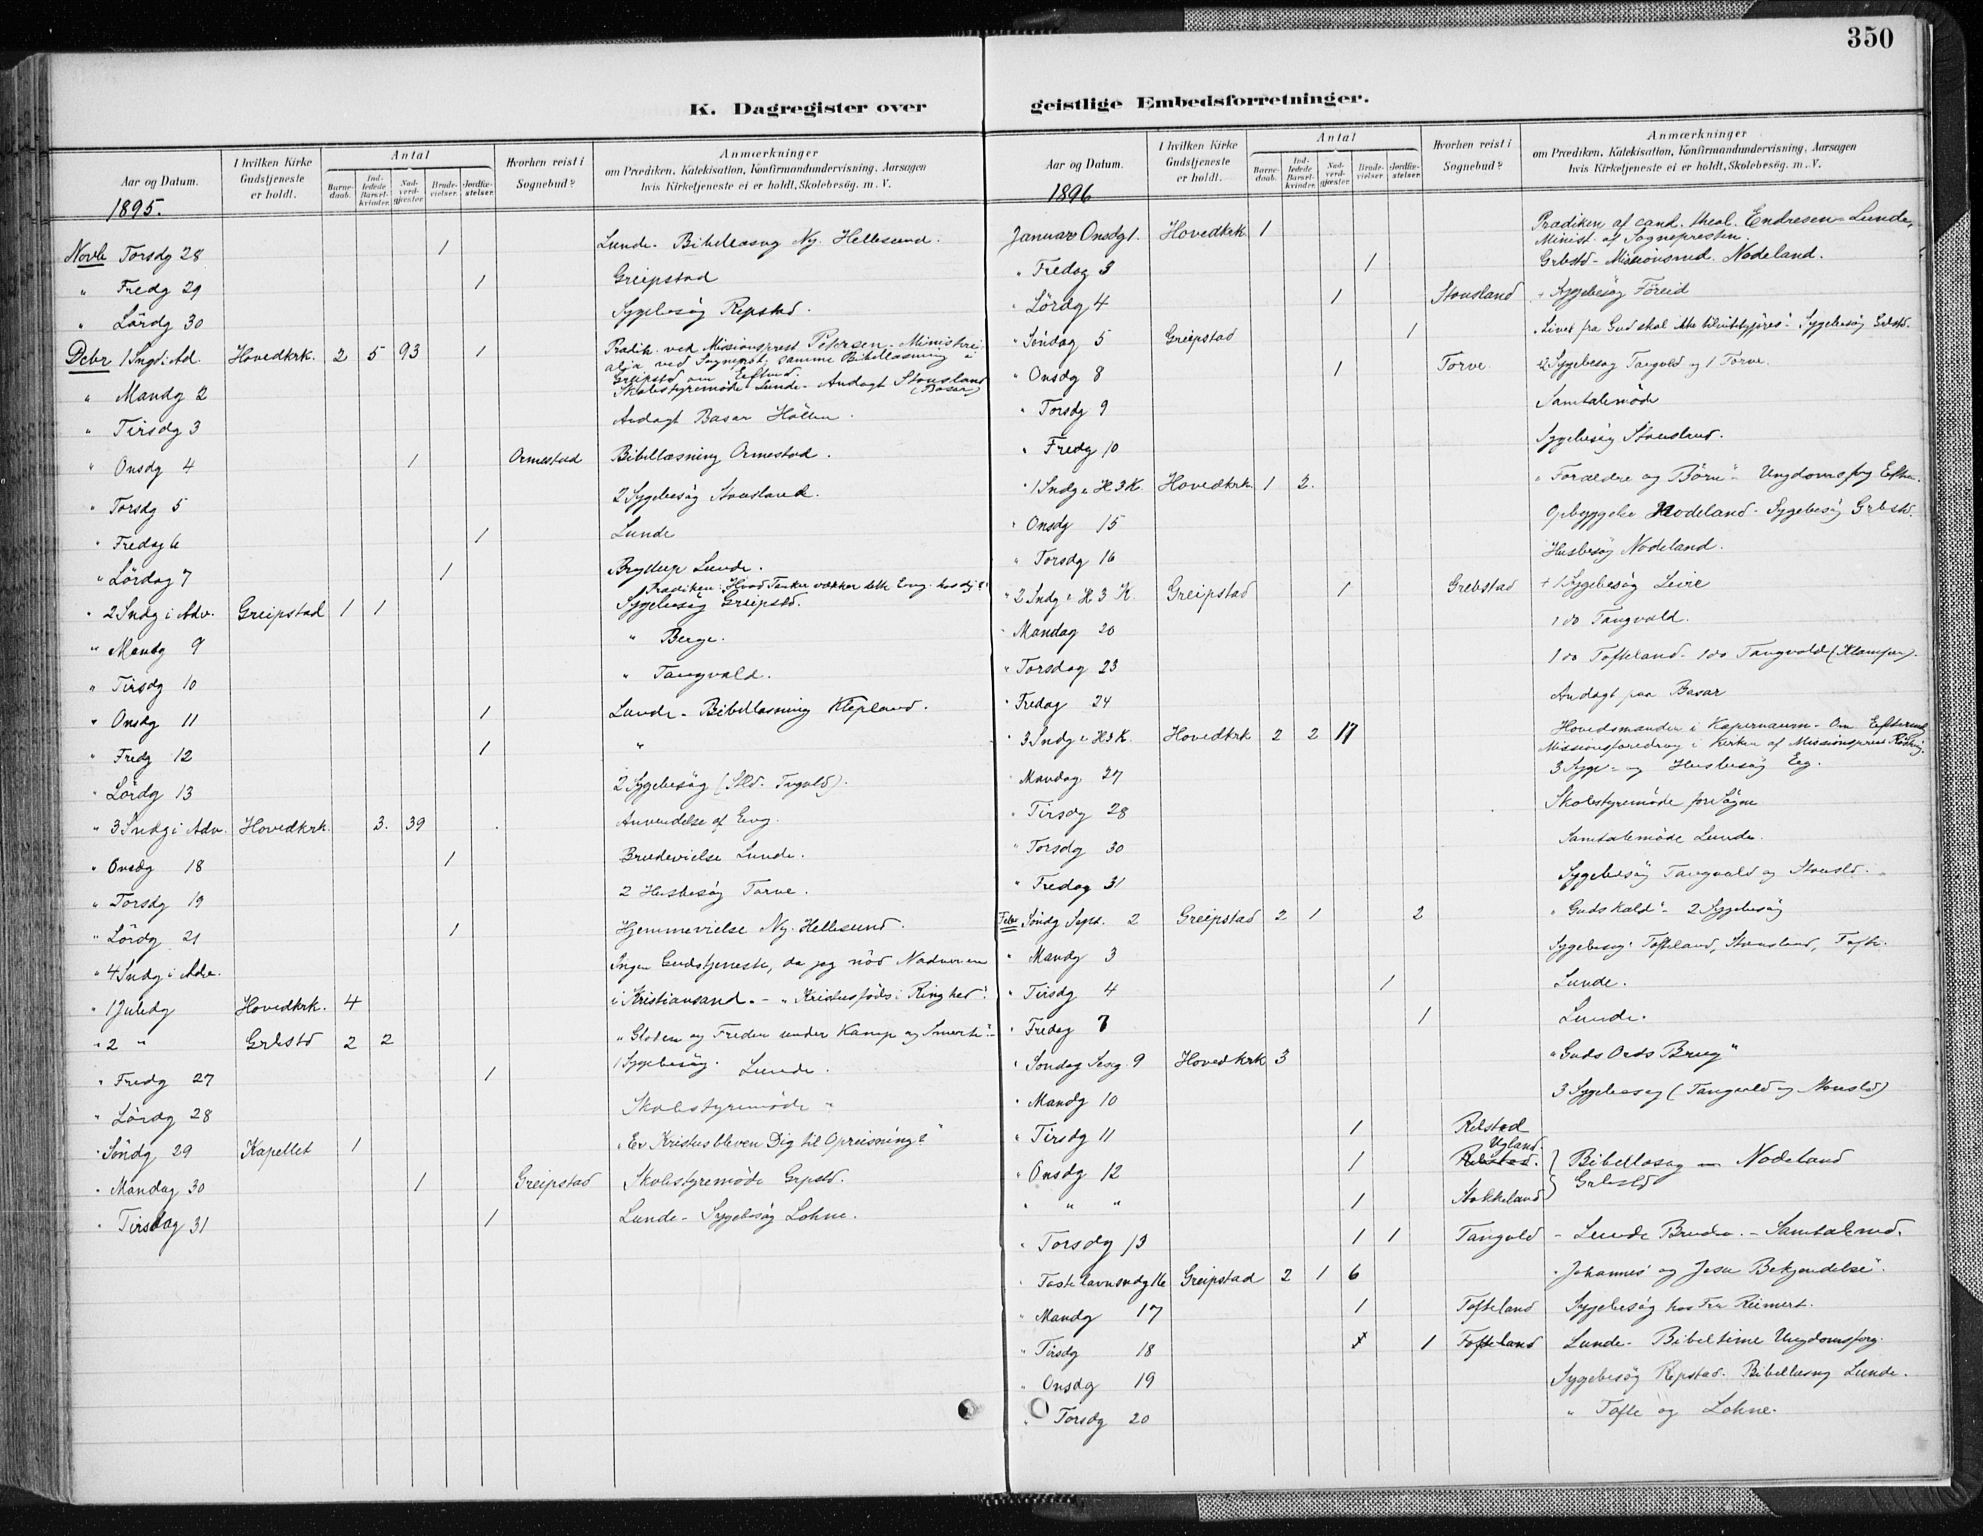 350
K. Dagregister over
geistlige Embedsforretninger.
Aar og Datum.
I hvilken Kirke Gudstjeneste er holdt.
Antal
Barnedaab.
Indledede Barselkvinder.
Nadverdgjæster
Brudevielser
Jordfæstelser.
Hvorhen reist i Sognebud?
Anmærkninger
om Prædiken, Katekisation, Konfirmandundervisning, Aarsagen
hvis Kirketjeneste ei er holdt, Skolebesøg, m. V.
1895.
Novbr Torsdg 28 1 Lunde - Bibellæsng Ny. Hellesund.
" Fredg 29 1 Greipstad
" Lördg 30 Sygebesög Repstad.
Decbr 1 Sngd i Ad. Hovedkrk. 2 5 93 1 Prædik. ved Missionsprest Petersen - Ministeri-
alia ved Sognepr. samme Bibellæsning i
Greipstd om Eftmd.
" Mandg 2 Skolestyremöde Lunde - Andagt Stousland (Basar)
" Tirsdg 3 Andagt Basar Hölen.
" Onsdg 4 1 Ormestad Bibellæsning Ormestad.
" Torsdg 5 2 Sygebesög Stousland.
" Fredag 6 1 Lunde
" Lördag 7 1 Brydup Lunde.
" 2 Sndg i Adv. Greipstad 1 1 Prædiken: Hvad Tanker vækker dette Evg. hos dig?
Sygebesög Greipstd.
" Mandg 9 " Berge.
" Tirsdg 10 " Tangvald.
" Onsdg 11 1 Lunde - Bibellæsning Klepland.
" Fredg 12 1 "
" Lördg 13 2 Sygebesög (Stld. Tngvald).
" 3 Sndg i Adv. Hovedkrk. 3. 39 Anvendelse af Evg.
" Onsdg 18 1 Brudevielse Lunde.
" Torsdg 19 2 Husbesög Torve.
" Lördg 21 1 Hjemmevielse Ny. Hellesund.
" 4 Sndg i Adv. Ingen Gudstjeneste, da jeg nöd Nadveren
" 1 Juledg Hovedkrk. 4 i Kristiansand. - "Kristus föds i Ringhed".
" 2 " Grbstd 2 2 "Glæden og Freden under Kamp og Smerte" -
1 Sygebesög.
" Fredg 27 1 Lunde.
" Lördg 28 Skolestyremöde "
" Söndg 29 Kapellet 1 "Er Kristus bleven Dig til Opreisning?"
" Mandag 30 1 Greipstad Skolestyremöde Grpstd.
" Tirsdag 31 1 Lunde - Sygebesög Lohne.
Aar og Datum.
I hvilken Kirke Gudstjeneste er holdt.
Antal
Barnedaab.
Indledede Barselkvinder.
Nadverdgjæster
Brudevielser
Jordfæstelser.
Hvorhen reist i Sognebud?
Anmærkninger
om Prædiken, Katekisation, Konfirmandundervisning, Aarsagen
hvis Kirketjeneste ei er holdt, Skolebesög, m. V.
1896
Januar Onsdg 1. Hovedkrk 1 Prædiken af cand. theol. Endresen - Lunde,
Minist. af Sognepresten.
" Fredag 3 1 Grbstd - Missionsmd. Nodeland.
" Lördg 4 1 Stousland + Sygebesög Föreid
" Söndag 5 Greipstad 1 Livet fra Gud skal ikke Sygebesög Grbstd.
" Onsdg 8 1 Torve 2 Sygebesög Tangvald og 1 Torve
" Torsdg 9 Samtalemöde
" Fredag 10 Sygebesög Stousland.
" 1 Sndg e. H 3 K. Hovedkrk 1 2. "Forældre og Börn" - Ungdomsforg Eftm.
" Onsdg 15 Opbyggelse Nodeland - Sygebesög Grbstd.
" Torsdg 16 Husbesög Nodeland.
" 2 Sndg e H 3 K. Greipstad 1 Grebstad + 1 Sygebesög Leire
" Mandag 20 1 do Tangvald.
" Torsdag 23 1 do Tofteland - 1 do Tangvald
" Fredag 24 Andagt paa Basar
" 3 Sndg e H3K. Hovedkrk 2 2 17 Hövedsmanden i Kapernaum - Om Eftermd
Missionsforedrag i Kirken af Missionsprest
" Mandag 27 3 Syge- og Husbesög Eeg.
" Tirsdg 28 Skolestyremöde for Sögne
" Torsdg 30 Samtalemöde Lunde.
" Fredag 31 Sygebesög Tangvald og Stousld.
Febr Söndg Sept. 2 Greipstad 2 1 2 "Guds Kald" - 2 Sygebesög
" Mandg 3 Sygebesög: Tofteland, Stousland, Tofte.
" Tirsdg 4 1 Lunde.
" Fredag 7 1 Lunde.
" Sondag Sexg. 9 Hovedkrk 3 "Guds Ords Brug"
" Mandg 10 3 Sygebesög (Tangvald og Stousld)
" Tirsdg 11 1 Rebstad
" Onsdg 12 1 Ugland Bibellæsng - Nodeland
" " " 1 Stokkeland Grbstd
" Torsdg 13 1 1 Tangvld - Lunde Brudev. - Samtalemd.
" Fastelavnsndg 16 Greipstad 2 1 6 "Johannes' og Jesu Bekjendelse".
" Mandg 17 1 Tofteland Sygebesög hos Fru Reimert.
" Tirsdg 18 1 Tofteland Lunde - Bibeltime Ungdomsforg.
" Onsdg 19 Sygebesög Repstad. Bibellæsng Lunde.
" Torsdg 20 " Tofte og Lohne.